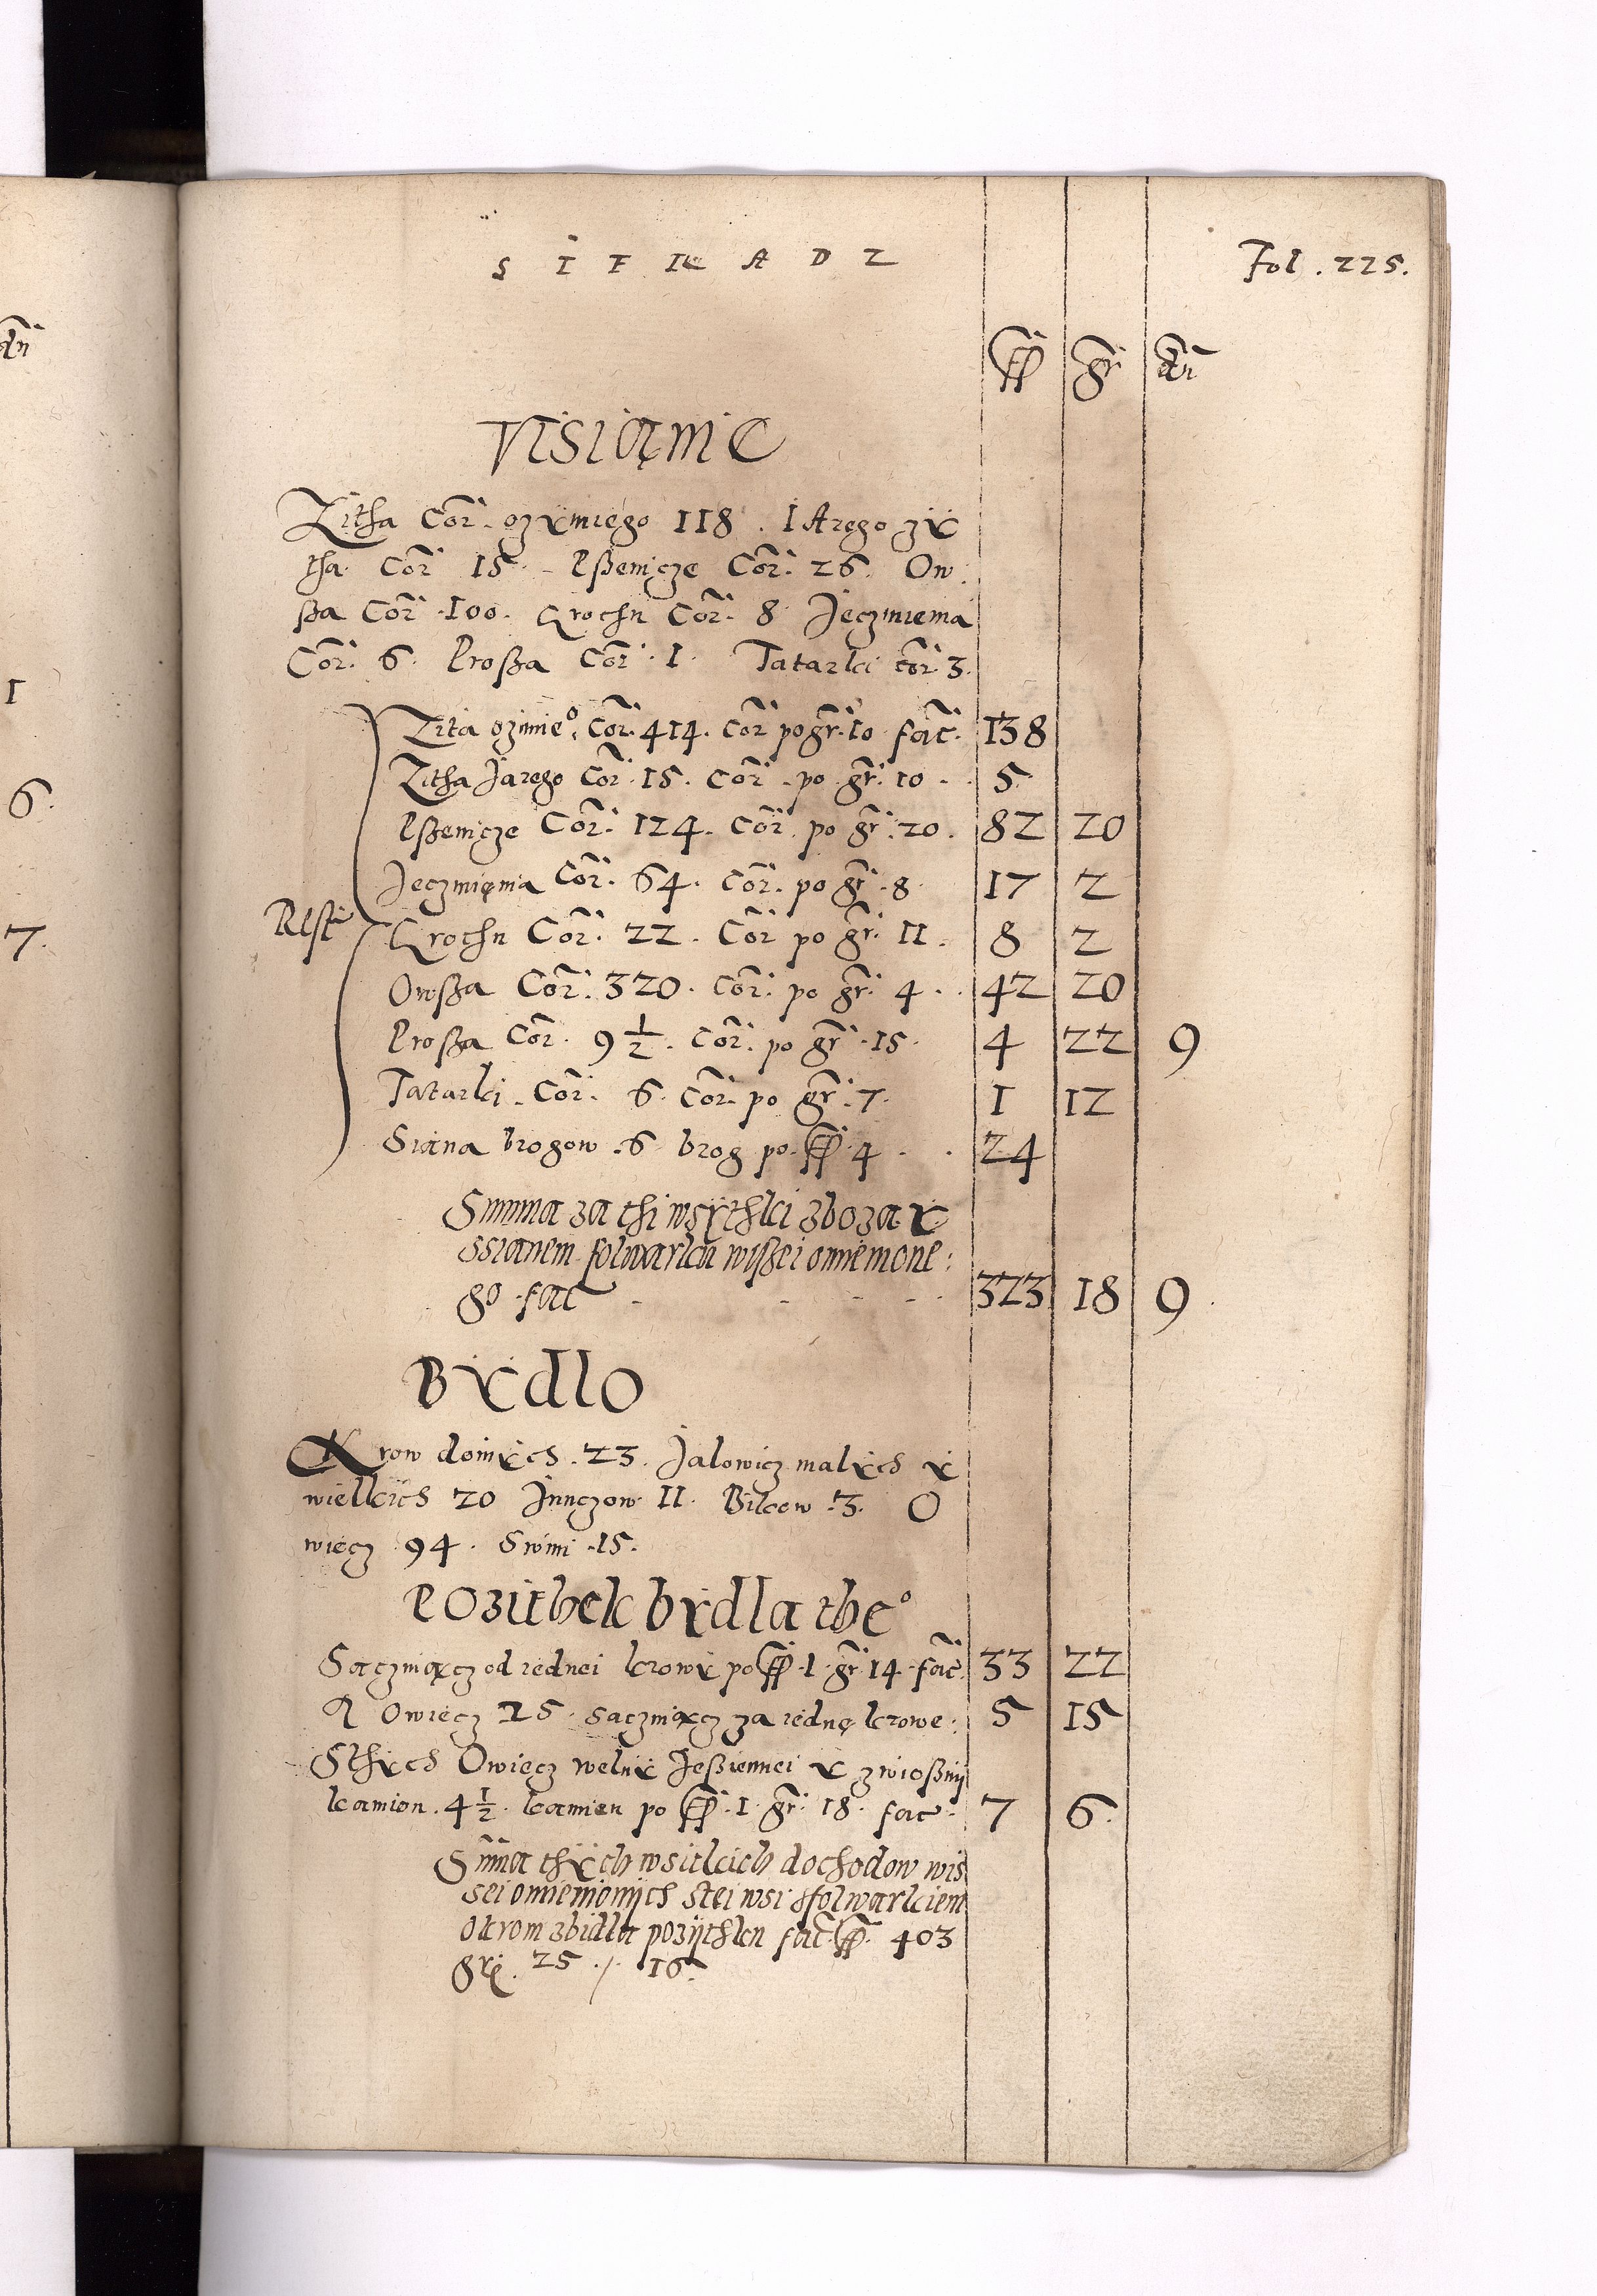 S I E R A D Z
Fol. 225.
ff gr dn
Vsianie
Zitha Cor. ozymiego 118. IArego zy
tha Cor 15 - Pßenicze Cor. 26. Ow:
ßa Cor. 100. Grochu Cor. 8 Jeczmienia
Cor. 6. Proßa Cor. 1. Tatarki cor. 3.
Zita ozimie° Cor. 414. Cor po gr. 10 fac. 138
Zitha Jarego Cor. 15. Cor. po gr. 10 - 5
Pßenicze Cor. 124. Cor. po gr. 20. 82 20
Jeczmięnia Cor. 64. Cor. po gr. 8 17 2
Rest
Grochu Cor. 22. Cor po gr. 11. 8 2
Owßa Cor. 320. Cor. po gr. 4 . . 42 20
Proßa Cor. 9 1/2. Cor. po gr. 15. 4 22 9
Tatarki Cor. 6. Cor. po gr. 7. 1 12
Siana brogow .6 brog po ff 4 . . 24
Summa za thi wsythki zboza y
ssianem folwarka wißei omiemone:
go fac - - - - 323 18 9
Bydlo
Krow doinych .23. Jalowicz malych y
wielkich 20 Junczow 11. Bikow .3. O
wiecz 94. Swini .15.
Pozithek bydla the°
Saczmiącz od iednei krowy po ff .1 gr 14 fac. 33 22
Owiecz 25 saczmiącz za iednę krowe: 5 15
Sthych Owiecz welny Jeßiennei y zwioßnÿ
kamion. 4 1/2. kamien po ff .1. gr. 18. fac. 7 6.
Suma thych wsitkich dochodow wis
sei omiemionÿch stei wsi sfolwarkiem
okrom zbidla pozÿthku fac. ff. 403
gr. 25 ./. 16
dn
1
6.
7.